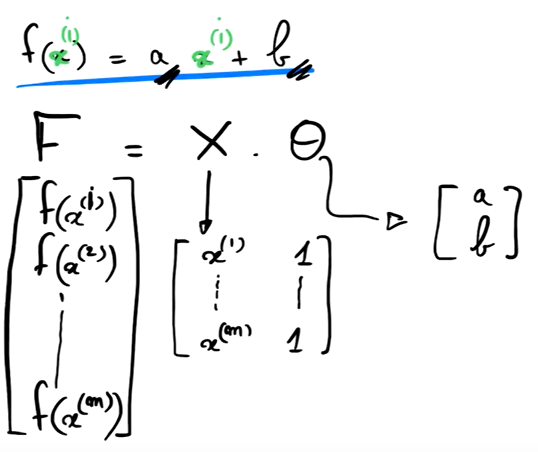 f(x⁽ⁱ⁾) = a x⁽ⁱ⁾ + b
F = X . Θ
f(x⁽ⁱ⁾)
f(x⁽²⁾)
f(x⁽ᵐ⁾)
x⁽¹⁾ 1
x⁽ᵐ⁾ 1
a
b